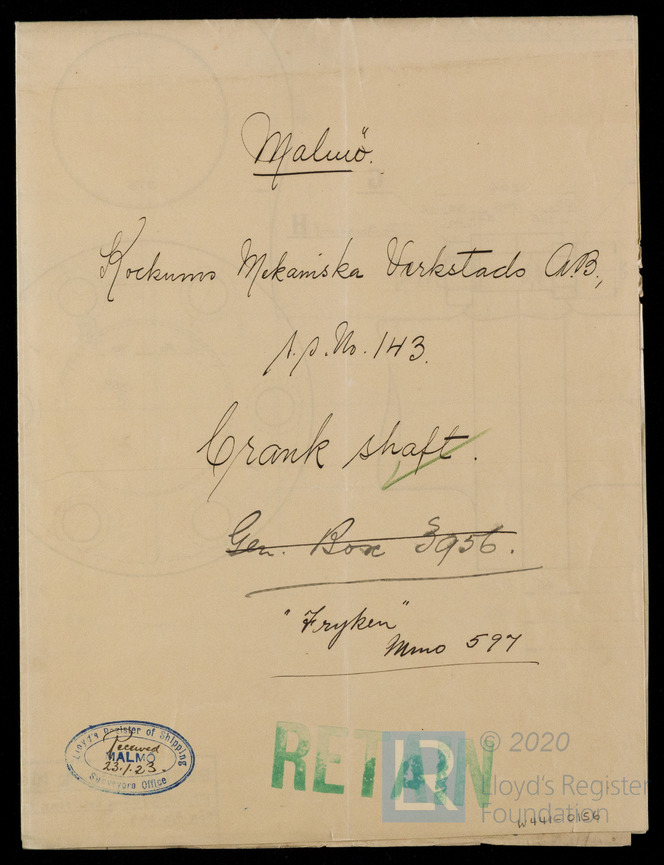 Malmö.
Kockums Mekaniska Verkstads A.B.,
s.s. No. 143.
Crank shaft.
Gen. Box 3956.
"Fryken"
Mmo 597
Lloyd's Register of Shipping
Received
MALMÖ
23.1.23.
Surveyors Office
RETAIN
LR
© 2020
Lloyd's Register
Foundation
W441-0156